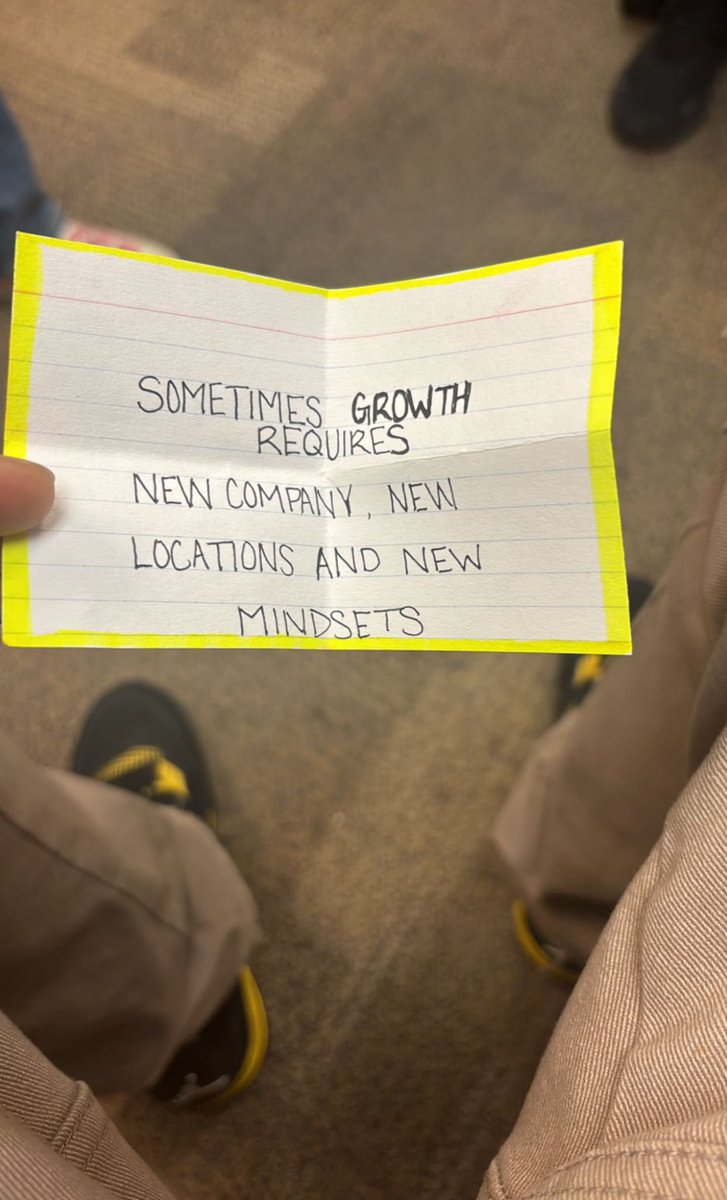 SOMETIMES GROWTH
REQUIRES
NEW COMPANY, NEW
LOCATIONS AND NEW
MINDSETS